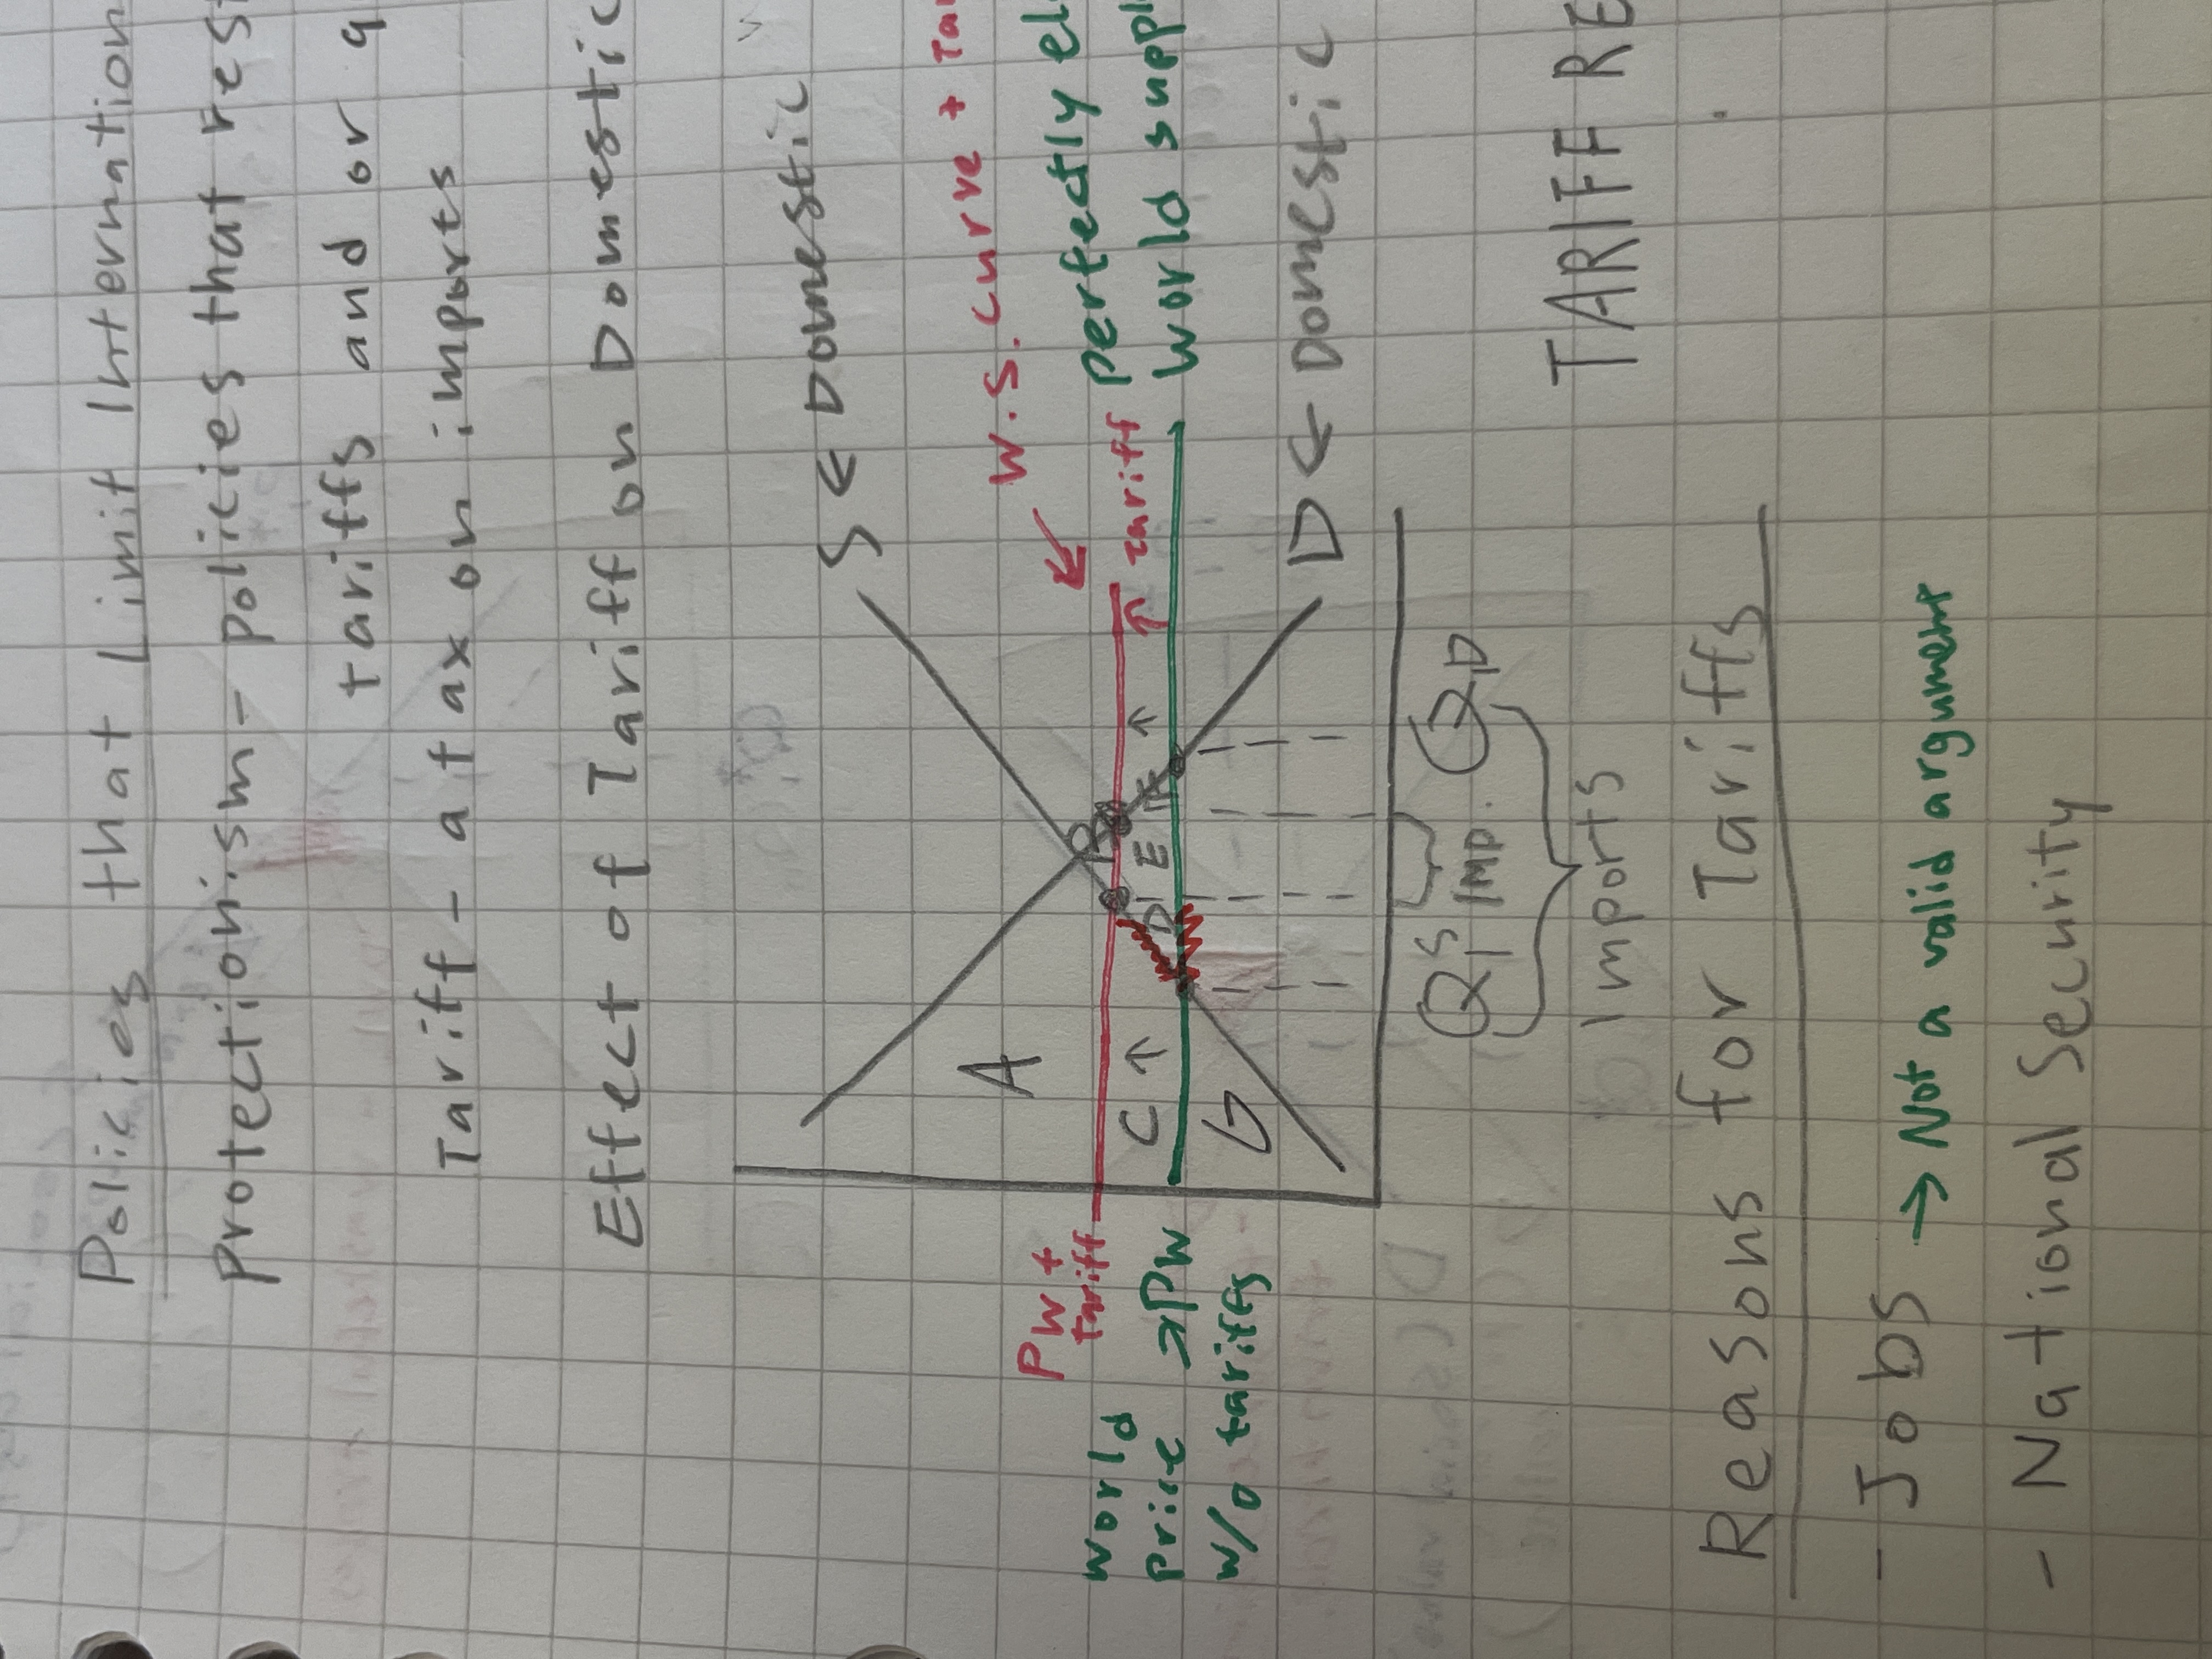 Policies that Limit Internation
Protectionism - policies that res
tariffs and or q
Tariff - a tax on imports
Effect of Tariff on Domestic
S ← Domestic
W.S. curve + Ta
Pw + tariff
↑ tariff
perfectly el
World supp
World
Price → Pw
w/o tariffs
A
B
C ↑
D
E
F ↑
G
D ← Domestic
QS
Imp.
QD
Imports
TARIFF RE
Reasons for Tariffs
- Jobs → Not a valid argument
- National Security